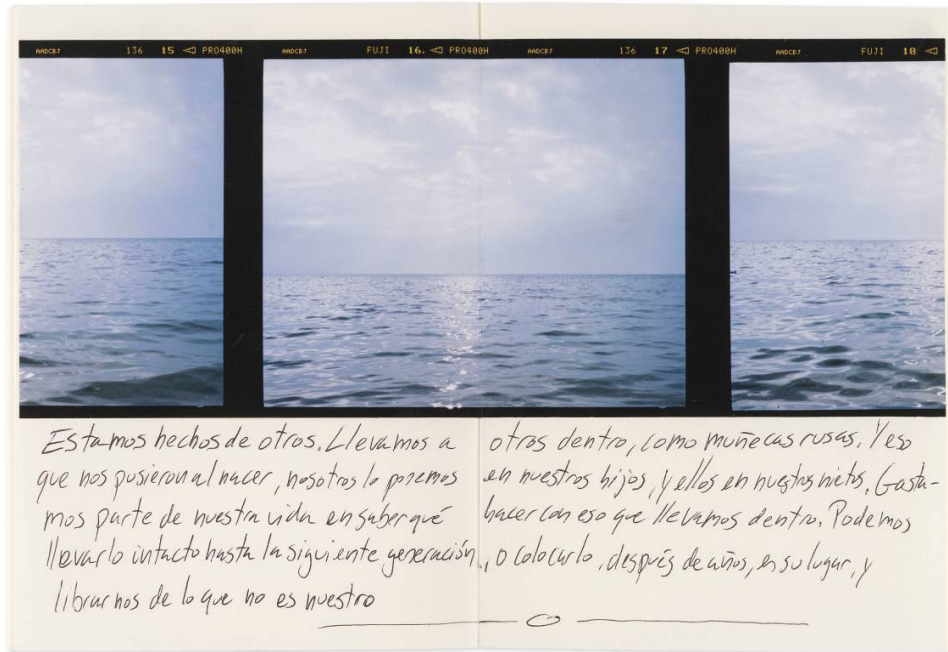 AADCBJ 136 15 ◁ PRO400H AADCBJ FUJI 16. ◁ PRO400H AADCBJ 136 17 ◁ PRO400H AADCBJ FUJI 18 ◁
Estamos hechos de otros. Llevamos a otros dentro, como muñecas rusas. Y eso
que nos pusieron al nacer, nosotros lo ponemos en nuestros hijos, y ellos en nuestros nietos. Gasta-
mos parte de nuestra vida en saber qué hacer con eso que llevamos dentro. Podemos
llevarlo intacto hasta la siguiente generación, o colocarlo, después de años, en su lugar, y
librarnos de lo que no es nuestro